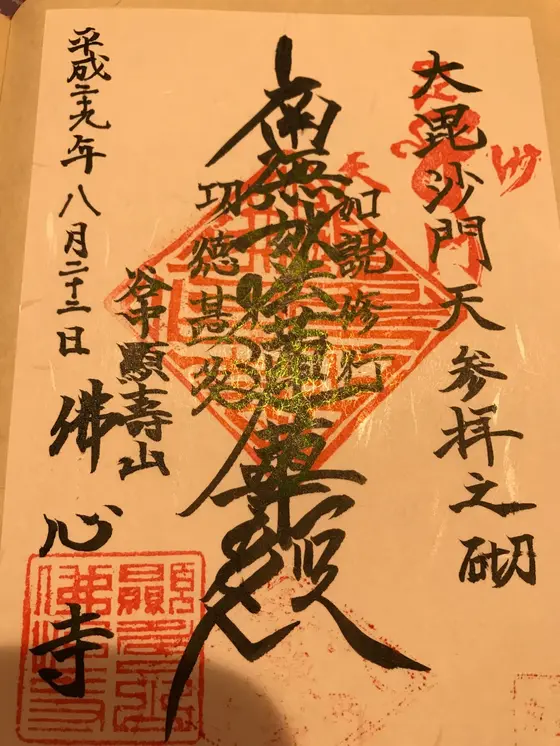 大毘沙門天 参拝之砌
如説修行
南無妙法蓮華経
功徳甚多
谷中 顯壽山
佛心寺
平成二十九年八月二十二日